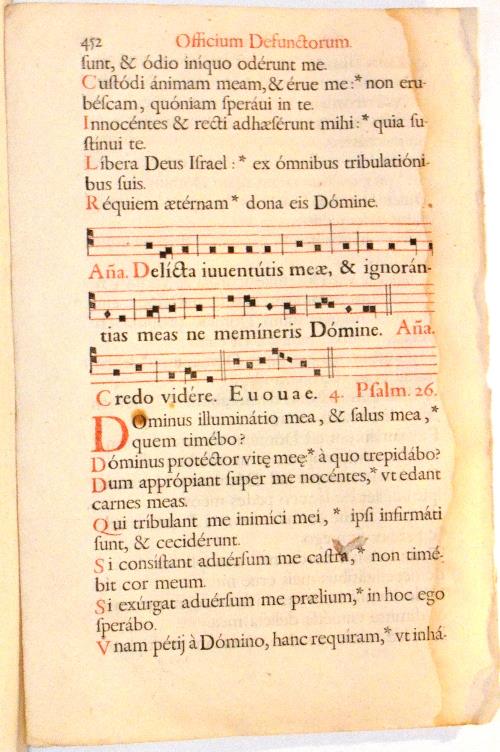 452 Officium Defunctorum.
ſunt, & ódio iníquo odérunt me.
Cuſtódi ánimam meam, & érue me:* non eru-
béſcam, quóniam ſperáui in te.
Innocéntes & recti adhæſérunt mihi:* quia ſu-
ſtínui te.
Líbera Deus Iſrael:* ex ómnibus tribulatióni-
bus ſuis.
Réquiem ætérnam* dona eis Dómine.
Aña. Delícta iuuentútis meæ, & ignorán-
tias meas ne memíneris Dómine. Aña.
Credo vidére. Euouae. 4. Pſalm. 26.
DOminus illuminátio mea, & ſalus mea,*
quem timébo?
Dóminus protéctor vitę meę:* à quo trepidábo?
Dum apprópiant ſuper me nocéntes,* vt edant
carnes meas.
Qui tríbulant me inimíci mei,* ipſi infirmáti
ſunt, & cecidérunt.
Si conſíſtant aduérſum me caſtra,* non timé-
bit cor meum.
Si exúrgat aduérſum me prælium,* in hoc ego
ſperábo.
Vnam pétij à Dómino, hanc requíram,* vt inhá-